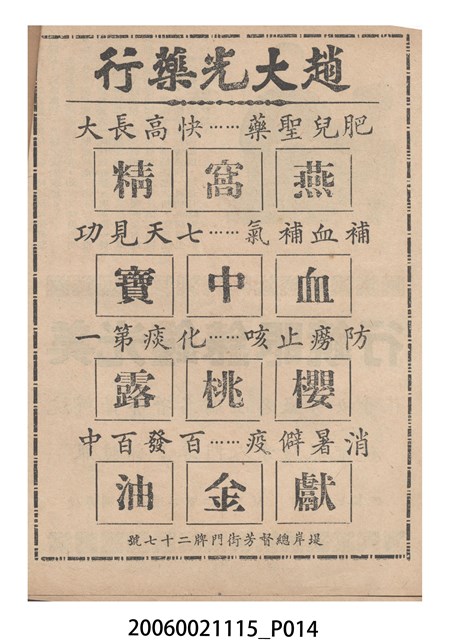 趙大光藥行
肥兒聖藥……快高長大
燕窩精
補血補氣……七天見功
血中寶
防癆止咳……化痰第一
櫻桃露
消暑僻疫……百發百中
獻金油
堤岸總督芳街門牌二十七號
20060021115_P014